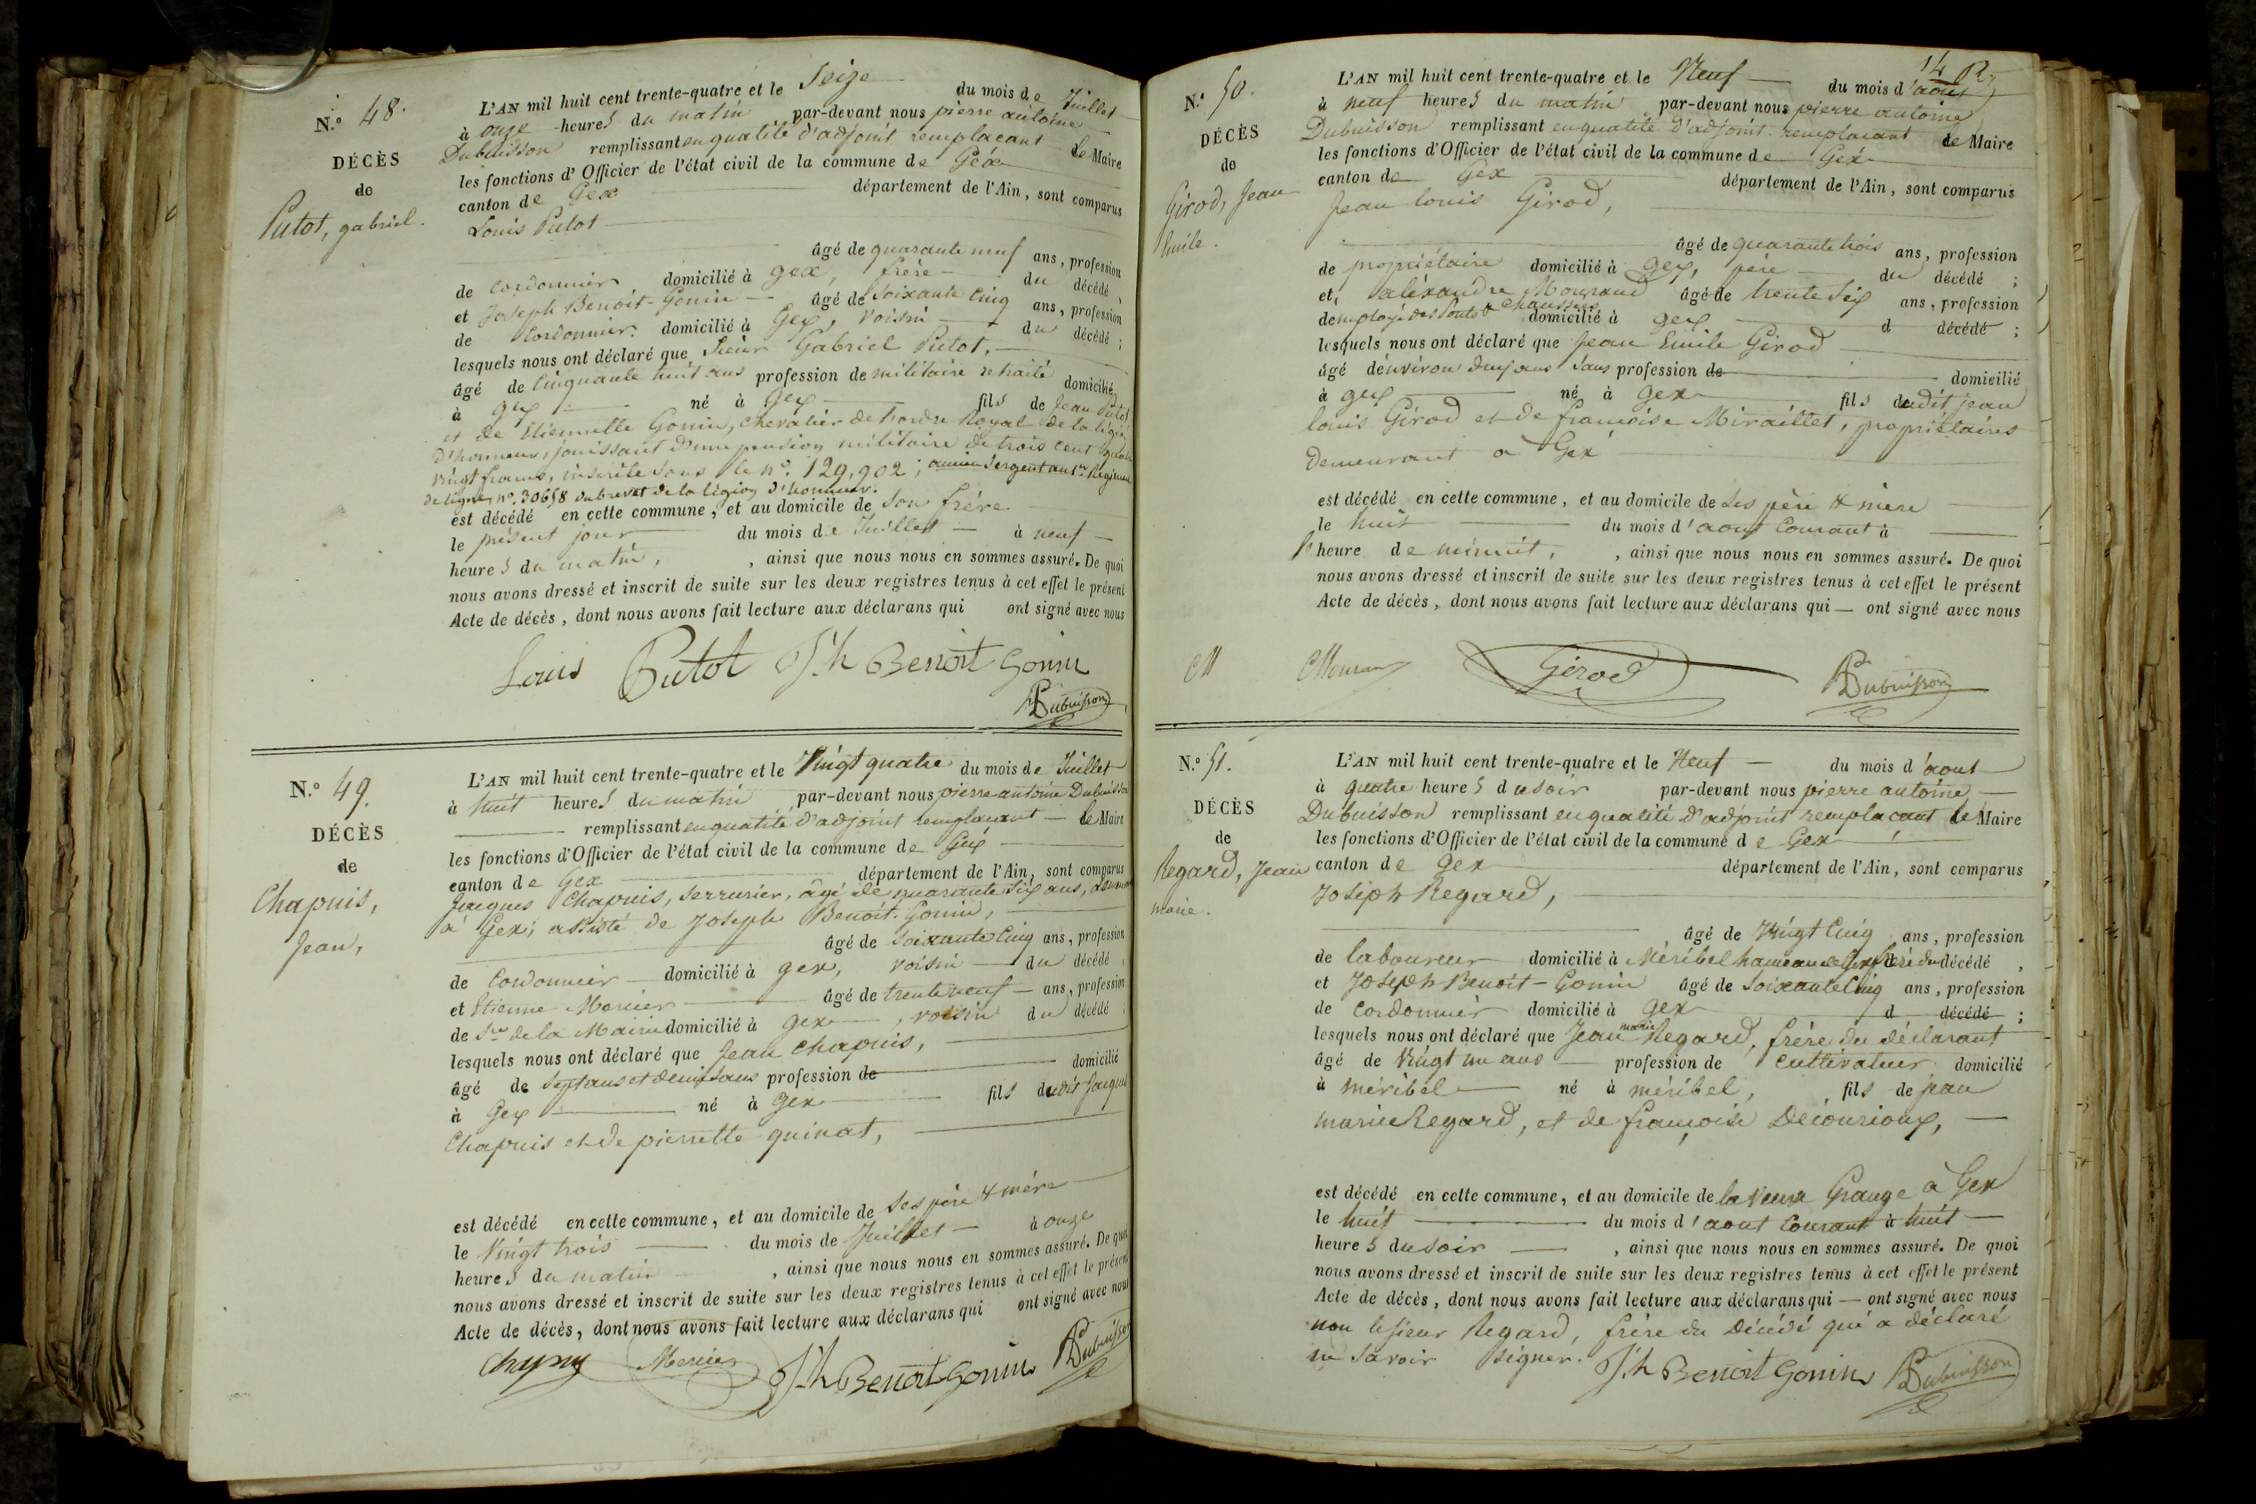 N.° 48.
DÉCÈS
de
Putot, gabriel.
L'AN mil huit cent trente-quatre et le Seize du mois de Juillet
à onze heures du matin par-devant nous pierre antoine
Dubuisson remplissant en qualité d'adjoint remplacant le Maire
les fonctions d'Officier de l'état civil de la commune de Gex
canton de Gex département de l'Ain, sont comparus
Louis Putot
âgé de quarante neuf ans, profession
de cordonnier domicilié à gex, frère du décédé,
et Joseph Benoit-Gonin âgé de Soixante Cinq ans, profession
de Cordonnier domicilié à Gex, voisin du décédé;
lesquels nous ont déclaré que Sieur Gabriel Putot,
âgé de Cinquante huit ans profession de militaire retraité domicilié
à gex né à gex fils de Jean Putot
et de Etiennette Gonin, Chevalier de l'ordre Royal de la légion
d'honneur, jouissant d'une pension militaire de trois cent quatre
vingt francs, inscrite sous le n°. 129,902; ancien Sergent au 1er Régiment
de ligne, n°. 30658 du brevet de la légion d'honneur.
est décédé en cette commune, et au domicile de son frère
le présent jour du mois de Juillet à neuf
heures du matin, , ainsi que nous nous en sommes assuré. De quoi
nous avons dressé et inscrit de suite sur les deux registres tenus à cet effet le présent
Acte de décès, dont nous avons fait lecture aux déclarans qui ont signé avec nous
Louis Putot J.h Benoit Gonin
PDubuisson
N.° 49.
DÉCÈS
de
Chapuis,
Jean,
L'AN mil huit cent trente-quatre et le Vingt quatre du mois de Juillet
à huit heures du matin par-devant nous pierre antoine Dubuisson
remplissant en qualité d'adjoint remplacant le Maire
les fonctions d'Officier de l'état civil de la commune de Gex
canton de Gex département de l'Ain, sont comparus
Jacques Chapuis, serrurier, âgé de quarante six ans,
à Gex; assisté de Joseph Benoit-Gonin,
âgé de Soixante Cinq ans, profession
de Cordonnier domicilié à gex, voisin du décédé,
et Etienne Mercier âgé de trente neuf ans, profession
de Sre de la Mairie domicilié à gex, voisin du décédé;
lesquels nous ont déclaré que Jean Chapuis,
âgé de Sept ans et demi, Sans profession de domicilié
à Gex né à Gex fils dudit Jacques
Chapuis et de pierrette quinat,
est décédé en cette commune, et au domicile de ses père & mère
le Vingt trois du mois de Juillet à onze
heures du matin , ainsi que nous nous en sommes assuré. De quoi
nous avons dressé et inscrit de suite sur les deux registres tenus à cet effet le présent
Acte de décès, dont nous avons fait lecture aux déclarans qui ont signé avec nous
Mercier J.h Benoit Gonin PDubuisson
14
N.° 50.
DÉCÈS
de
Girod, Jean
Emile.
L'AN mil huit cent trente-quatre et le Neuf du mois d'aout
à neuf heures du matin par-devant nous pierre antoine
Dubuisson remplissant en qualité d'adjoint remplacant le Maire
les fonctions d'Officier de l'état civil de la commune de Gex
canton de Gex département de l'Ain, sont comparus
Jean louis Girod,
âgé de quarante trois ans, profession
de propriétaire domicilié à gex, père du décédé;
et, aléxandre Mouraud âgé de trente Six ans, profession
d'employé des Ponts & Chaussées domicilié à gex d décédé;
lesquels nous ont déclaré que Jean Emile Girod
âgé d'environ deux ans Sans profession de domicilié
à gex né à gex fils dudit jean
louis Girod et de francoise Miraillet, propriétaires
demeurant à Gex
est décédé en cette commune, et au domicile de ses père & mère
le huit du mois d'aout Courant à
l'heure de minuit, , ainsi que nous nous en sommes assuré. De quoi
nous avons dressé et inscrit de suite sur les deux registres tenus à cet effet le présent
Acte de décès, dont nous avons fait lecture aux déclarans qui — ont signé avec nous
Girod PDubuisson
N.° 51.
DÉCÈS
de
Regard, Jean
marie.
L'AN mil huit cent trente-quatre et le Neuf du mois d'aout
à quatre heures du soir par-devant nous pierre antoine
Dubuisson remplissant en qualité d'adjoint remplacant le Maire
les fonctions d'Officier de l'état civil de la commune de Gex
canton de gex département de l'Ain, sont comparus
Joseph Regard,
âgé de Vingt Cinq ans, profession
de laboureur domicilié à Méribel hameau de Gex, frère du décédé,
et Joseph Benoit-Gonin âgé de Soixante Cinq ans, profession
de Cordonnier domicilié à gex d décédé;
lesquels nous ont déclaré que Jean marie Regard, frère du déclarant
âgé de Vingt un ans profession de cultivateur domicilié
à méribel né à méribel, fils de jean
marie Regard, et de françoise Décourioux,
est décédé en cette commune, et au domicile de la Veuve Grange à Gex
le huit du mois d'aout Courant à huit
heures du soir , ainsi que nous nous en sommes assuré. De quoi
nous avons dressé et inscrit de suite sur les deux registres tenus à cet effet le présent
Acte de décès, dont nous avons fait lecture aux déclarans qui — ont signé avec nous
non le sieur Regard, frère du Décédé qui a déclaré
ne savoir signer. J.h Benoit Gonin PDubuisson